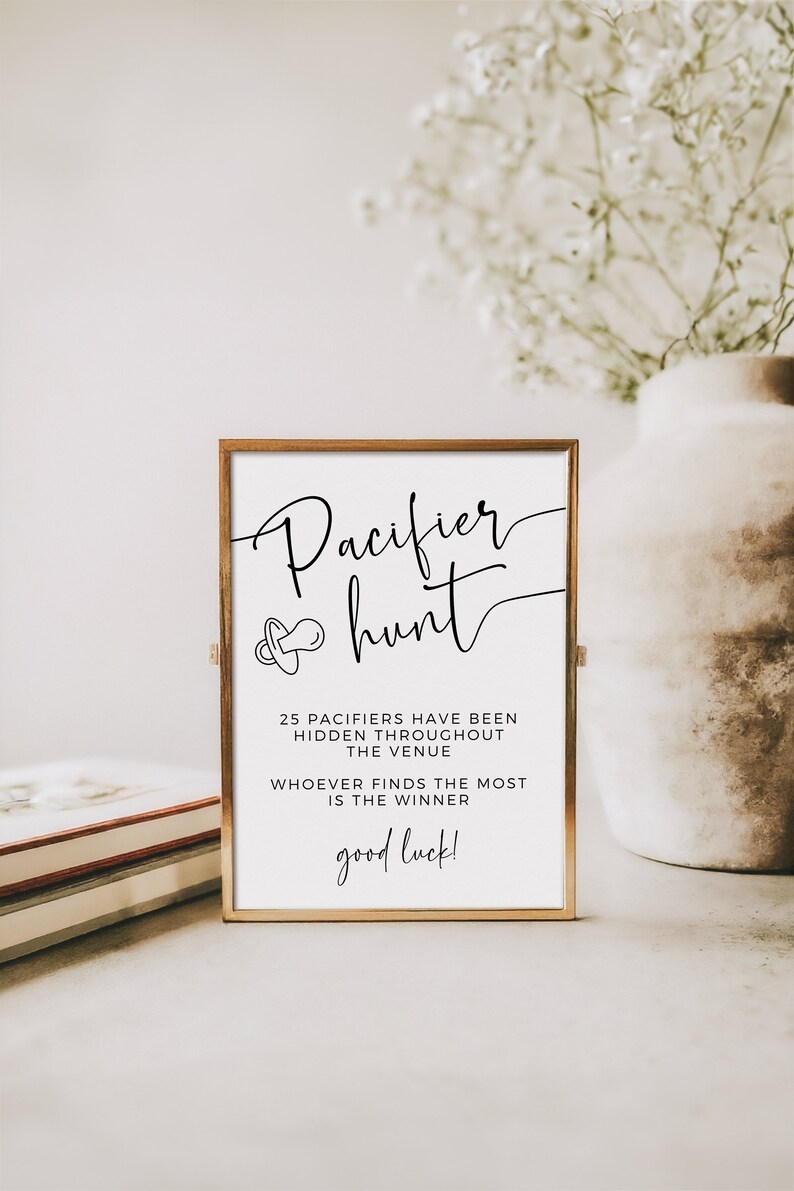 Pacifier
hunt
25 PACIFIERS HAVE BEEN
HIDDEN THROUGHOUT
THE VENUE
WHOEVER FINDS THE MOST
IS THE WINNER
good luck!